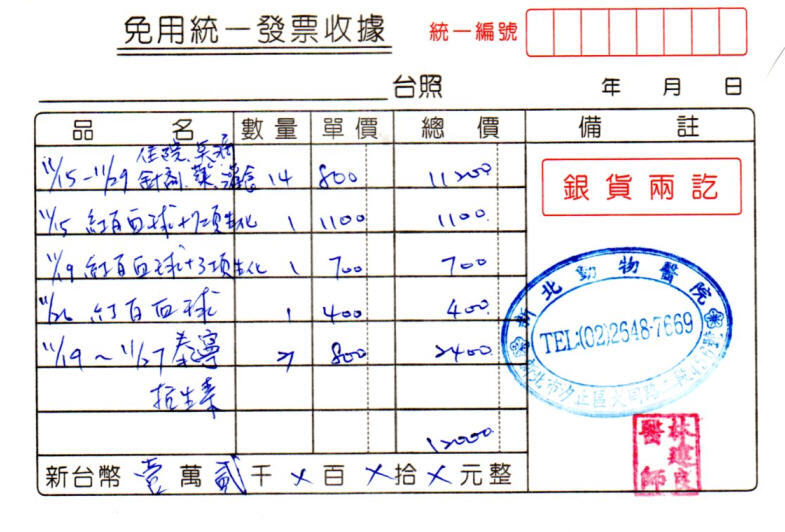 免用統一發票收據 統一編號
台照 年 月 日
品名 數量 單價 總價 備註
住院.吳病
11/15-11/29 針劑.藥.消炎 14 800 11200
11/15 紅百血球+7項生化 1 1100 1100
11/19 紅百血球+3項生化 1 700 700
11/26 紅百血球 1 400 400
11/19~11/27 泰寧 3 800 2400
抗生素
12000
新台幣 壹 萬 貳 千 × 百 × 拾 × 元整
銀貨兩訖
新北動物醫院
TEL:(02)2648-7669
新北市汐止區大同路
林建良
醫師